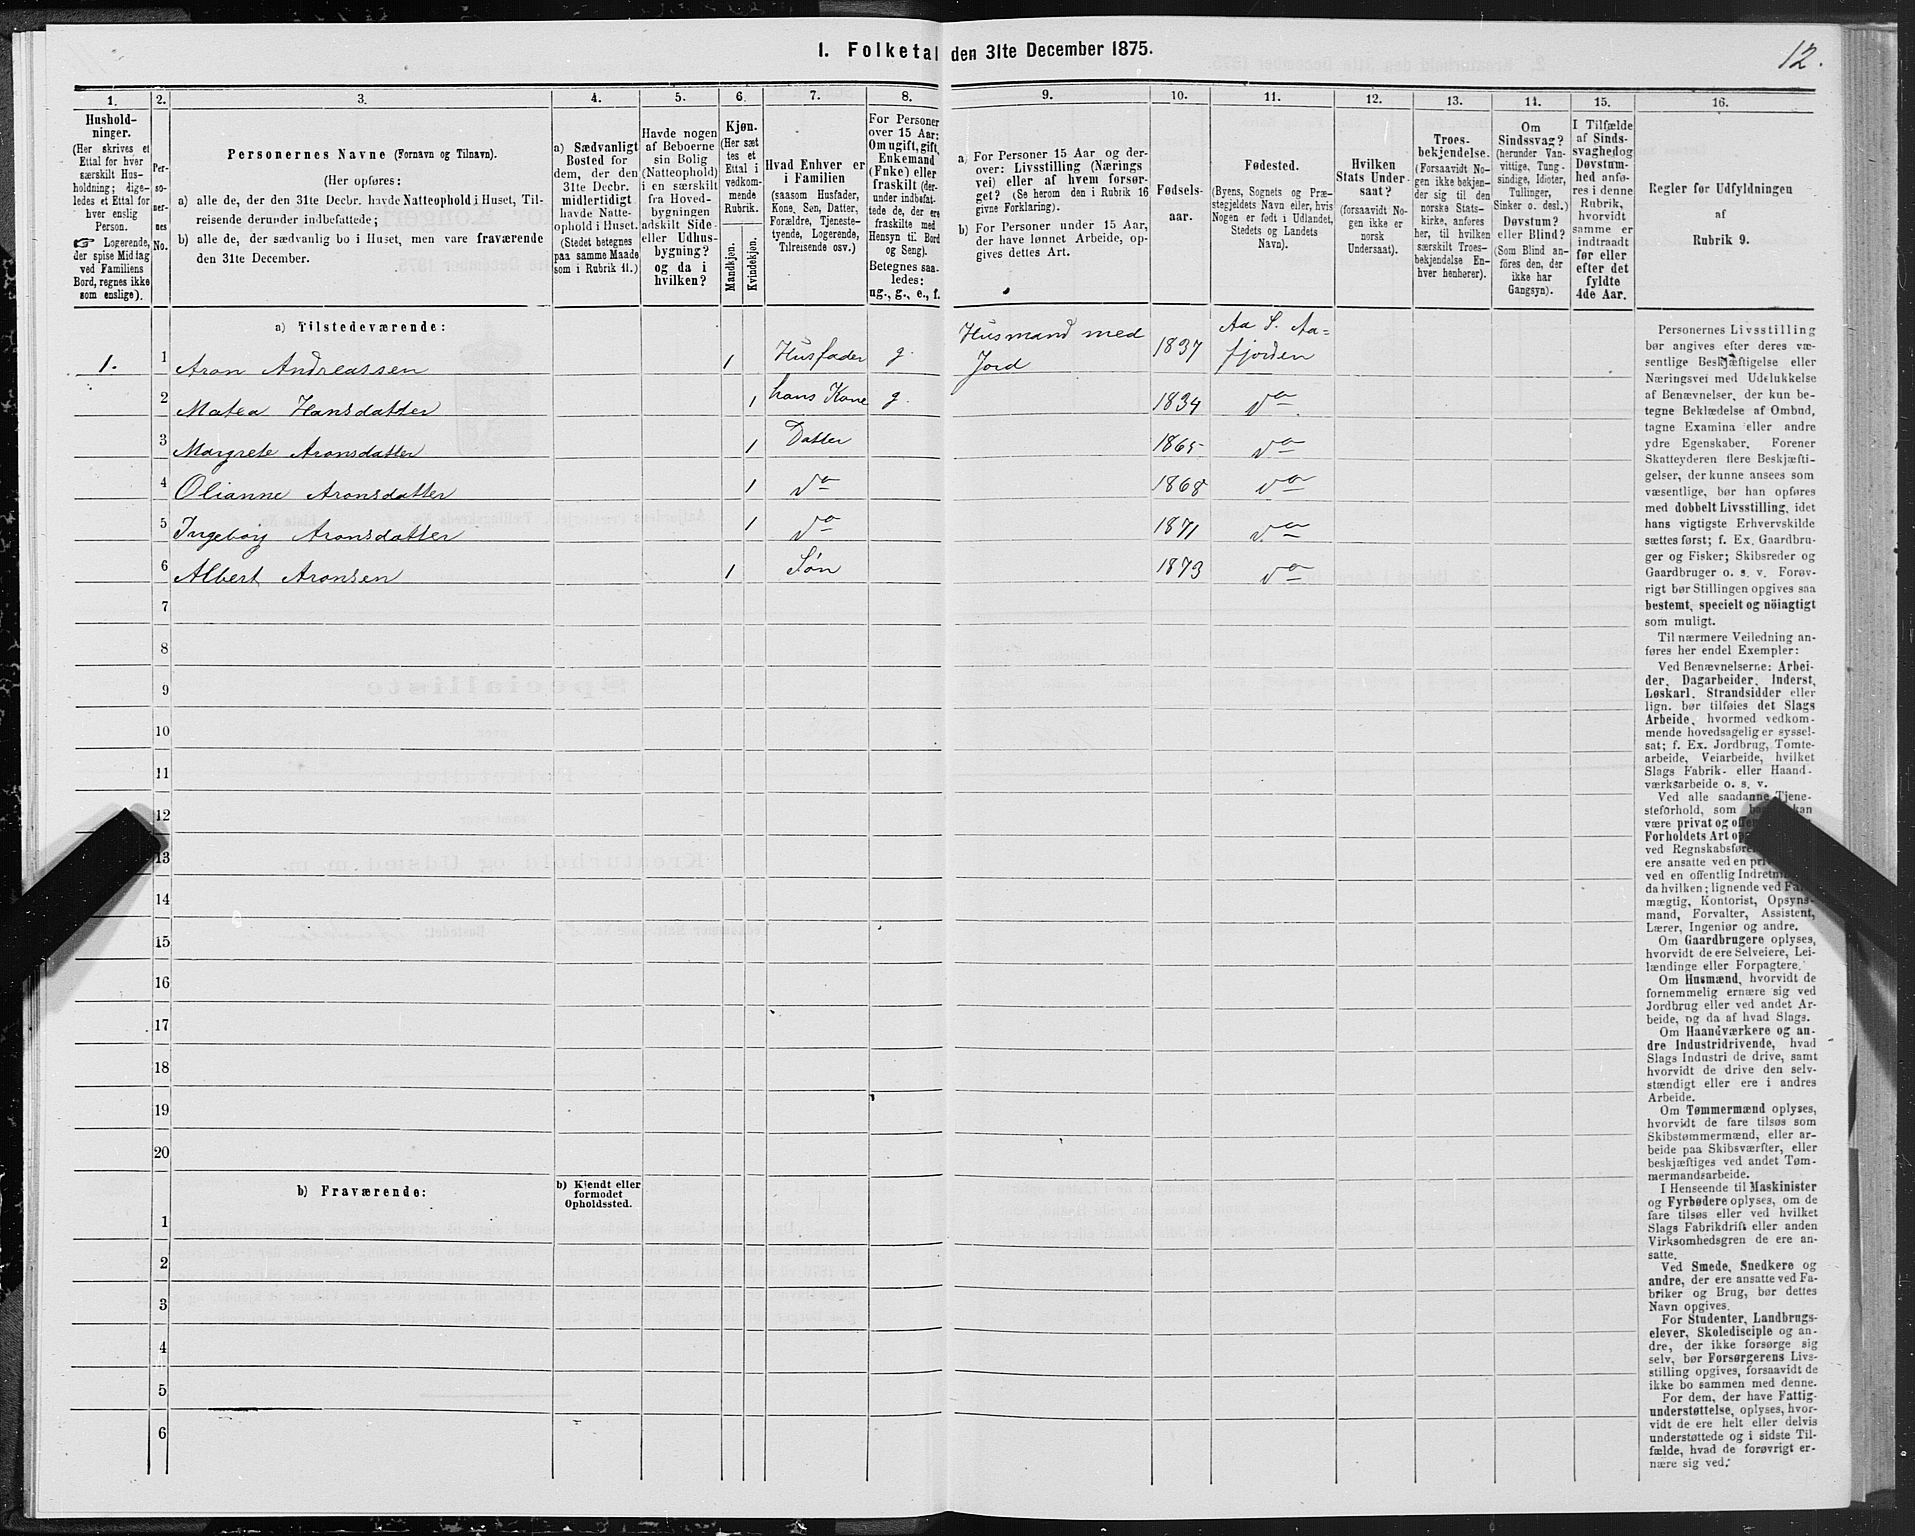 I. Folketal den 31te December 1875.
12.
1.
2.
3.
4.
5.
6.
7.
8.
9.
10.
11.
12.
13.
14.
15.
16.
Hushold-
ninger.
(Her skrives et
Ettal for hver
særskilt Hus-
holdning; dige-
ledes et Ettal for
hver enslig
Person.
☞ Logerende,
der spise Middag
ved Familiens
Bord, regnes ikke
som enslige).
Per-
so-
ner-
nes
No.
Personernes Navne (Fornavn og Tilnavn).
(Her opføres:
a) alle de, der den 31te Decbr. havde Natteophold i Huset, Til-
reisende derunder indbefattede;
b) alle de, der sædvanlig bo i Huset, men vare fraværende
den 31te December.
a) Sædvanligt
Bosted for
dem, der den
31te Decbr.
midlertidigt
havde Natte-
ophold i Huset.
(Stedet betegnes
paa samme Maade
som i Rubrik 11.)
Havde nogen
af Beboerne
sin Bolig
(Natteophold)
i en særskilt
fra Hoved-
bygningen
adskilt Side-
eller Udhus-
bygning?
og da i
hvilken?
Kjøn.
(Her sæt
tes et
Ettal i
vedkom-
mende
Rubrik.
Mandkjøn.
Kvindekjøn.
Hvad Enhver er
i Familien
(saasom Husfader,
Kone, Søn, Datter,
Forældre, Tjeneste-
tyende, Logerende,
Tilreisende osv.)
For Personer
over 15 Aar:
Om ugift, gift,
Enkemand
(Enke) eller
fraskilt (der-
under indbefat-
tede de, der ere
fraskilte med
Hensyn til Bord
og Seng).
Betegnes saa-
ledes:
ug., g., e., f.
a) For Personer 15 Aar og der-
over: Livsstilling (Nærings
vei) eller af hvem forsør-
get? (Se herom den i Rubrik 16
givne Forklaring).
b) For Personer under 15 Aar,
der have lønnet Arbeide, op-
gives dettes Art.
Fødsels-
aar.
Fødested.
(Byens, Sognets og Præ-
stegjeldets Navn eller, hvis
Nogen er født i Udlandet,
Stedets og Landets
Navn).
Hvilken
Stats Under-
saat?
(forsaavidt No-
gen ikke er
norsk
Undersaat).
Troes-
bekjendelse.
(Forsaavidt No-
gen ikke bekjen-
der sig til den
norske Stats-
kirke, anføres
her, til hvilken
særskilt Troes-
bekjendelse En-
hver henhører).
Om
Sindssvag?
(herunder Van-
vittige, Tung-
sindige, Idioter,
Tullinger,
Sinker o. desl.)
Døvstum?
eller Blind?
(Som Blind an-
føres den, der
ikke har
Gangsyn).
I Tilfælde
af Sinds-
svaghed og
Døvstum-
hed anfø-
res i denne
Rubrik,
hvorvidt
samme er
indtraadt
før eller
efter det
fyldte
4de Aar.
Regler for Udfyldningen
af
Rubrik 9.
a) Tilstedeværende:
1. 1 Aron Andreassen 1 Husfader g. Husmand med Jord 1837 Aa S. Aa=
fjorden
2 Matea Hansdatter 1 hans Kone g. 1834 do
3 Margrete Aronsdatter 1 Datter 1865 do
4 Olianne Aronsdatter 1 do 1868 do
5 Ingeborg Aronsdatter 1 do 1871 do
6 Albert Aronsen 1 Søn 1873 do
7
8
9
10
11
12
13
14
15
16
17
18
19
20
b) Fraværende:
b) Kjendt eller
formodet
Opholdssted.
1
2
3
4
5
6
Personernes Livsstilling
bør angives efter deres væ-
sentlige Beskjæftigelse eller
Næringsvei med Udelukkelse
af Benævnelser, der kun be-
tegne Beklædelse af Ombud,
tagne Examina eller andre
ydre Egenskaber. Forener
Skatteyderen flere Beskjæfti-
gelser, der kunne ansees som
væsentlige, bør han opføres
med dobbelt Livsstilling, idet
hans vigtigste Erhvervskilde
sættes først; f. Ex. Gaardbru-
ger og Fisker; Skibsreder og
Gaardbruger o. s. v. Forøv-
rigt bør Stillingen opgives saa
bestemt, specielt og nöiagtigt
som muligt.
Til nærmere Veiledning an-
føres her endel Exempler:
Ved Benævnelserne: Arbei-
der, Dagarbeider, Inderst,
Løskarl, Strandsidder eller
lign. bør tilføies det Slags
Arbeide, hvormed vedkom-
mende hovedsagelig er syssel-
sat; f. Ex. Jordbrug, Tomte-
arbeide, Veiarbeide, hvilket
Slags Fabrik- eller Haand-
værksarbeide o. s. v.
Ved alle saadanne Tjene-
steforhold, som kan
være privat og
Forholdets Art
ved
ere ansatte ved en
ved en offentlig
da hvilken; lignende ved
mægtig, Kontorist, Opsyns-
mand, Forvalter, Assistent,
Lærer, Ingeniør og andre.
Om Gaardbrugere oplyses,
hvorvidt de ere Selveiere, Lei-
lændinge eller Forpagtere.
Om Husmænd, hvorvidt de
fornemmelig ernære sig ved
Jordbrug eller ved andet Ar-
beide, og da af hvad Slags.
Om Haandværkere og an-
dre Industridrivende, hvad
Slags Industri de drive, samt
hvorvidt de drive den selv-
stændigt eller ere i andres
Arbeide.
Om Tømmermænd oplyses,
hvorvidt de fare tilsøs som
Skibstømmermænd, eller ar-
beide paa Skibsværfter, eller
beskjæftiges ved andet Tøm-
mermandsarbeide.
I Henseende til Maskinister
og Fyrbødere oplyses, om de
fare tilsøs eller ved hvilket
Slags Fabrikdrift eller anden
Virksomhedsgren de ere an-
satte.
Ved Smede, Snedkere og
andre, der ere ansatte ved Fa-
briker og Brug, bør dettes
Navn opgives.
For Studenter, Landbrugs-
elever, Skoledisciple og an-
dre, der ikke forsørge sig
selv, bør Forsørgerens Livs-
stilling opgives, forsaavidt de
ikke bo sammen med denne.
For dem, der have Fattig-
understøttelse, oplyses, hvor-
vidt de ere helt eller delvis
understøttede og i sidste Til-
fælde, hvad de forøvrigt er-
nære sig ved.